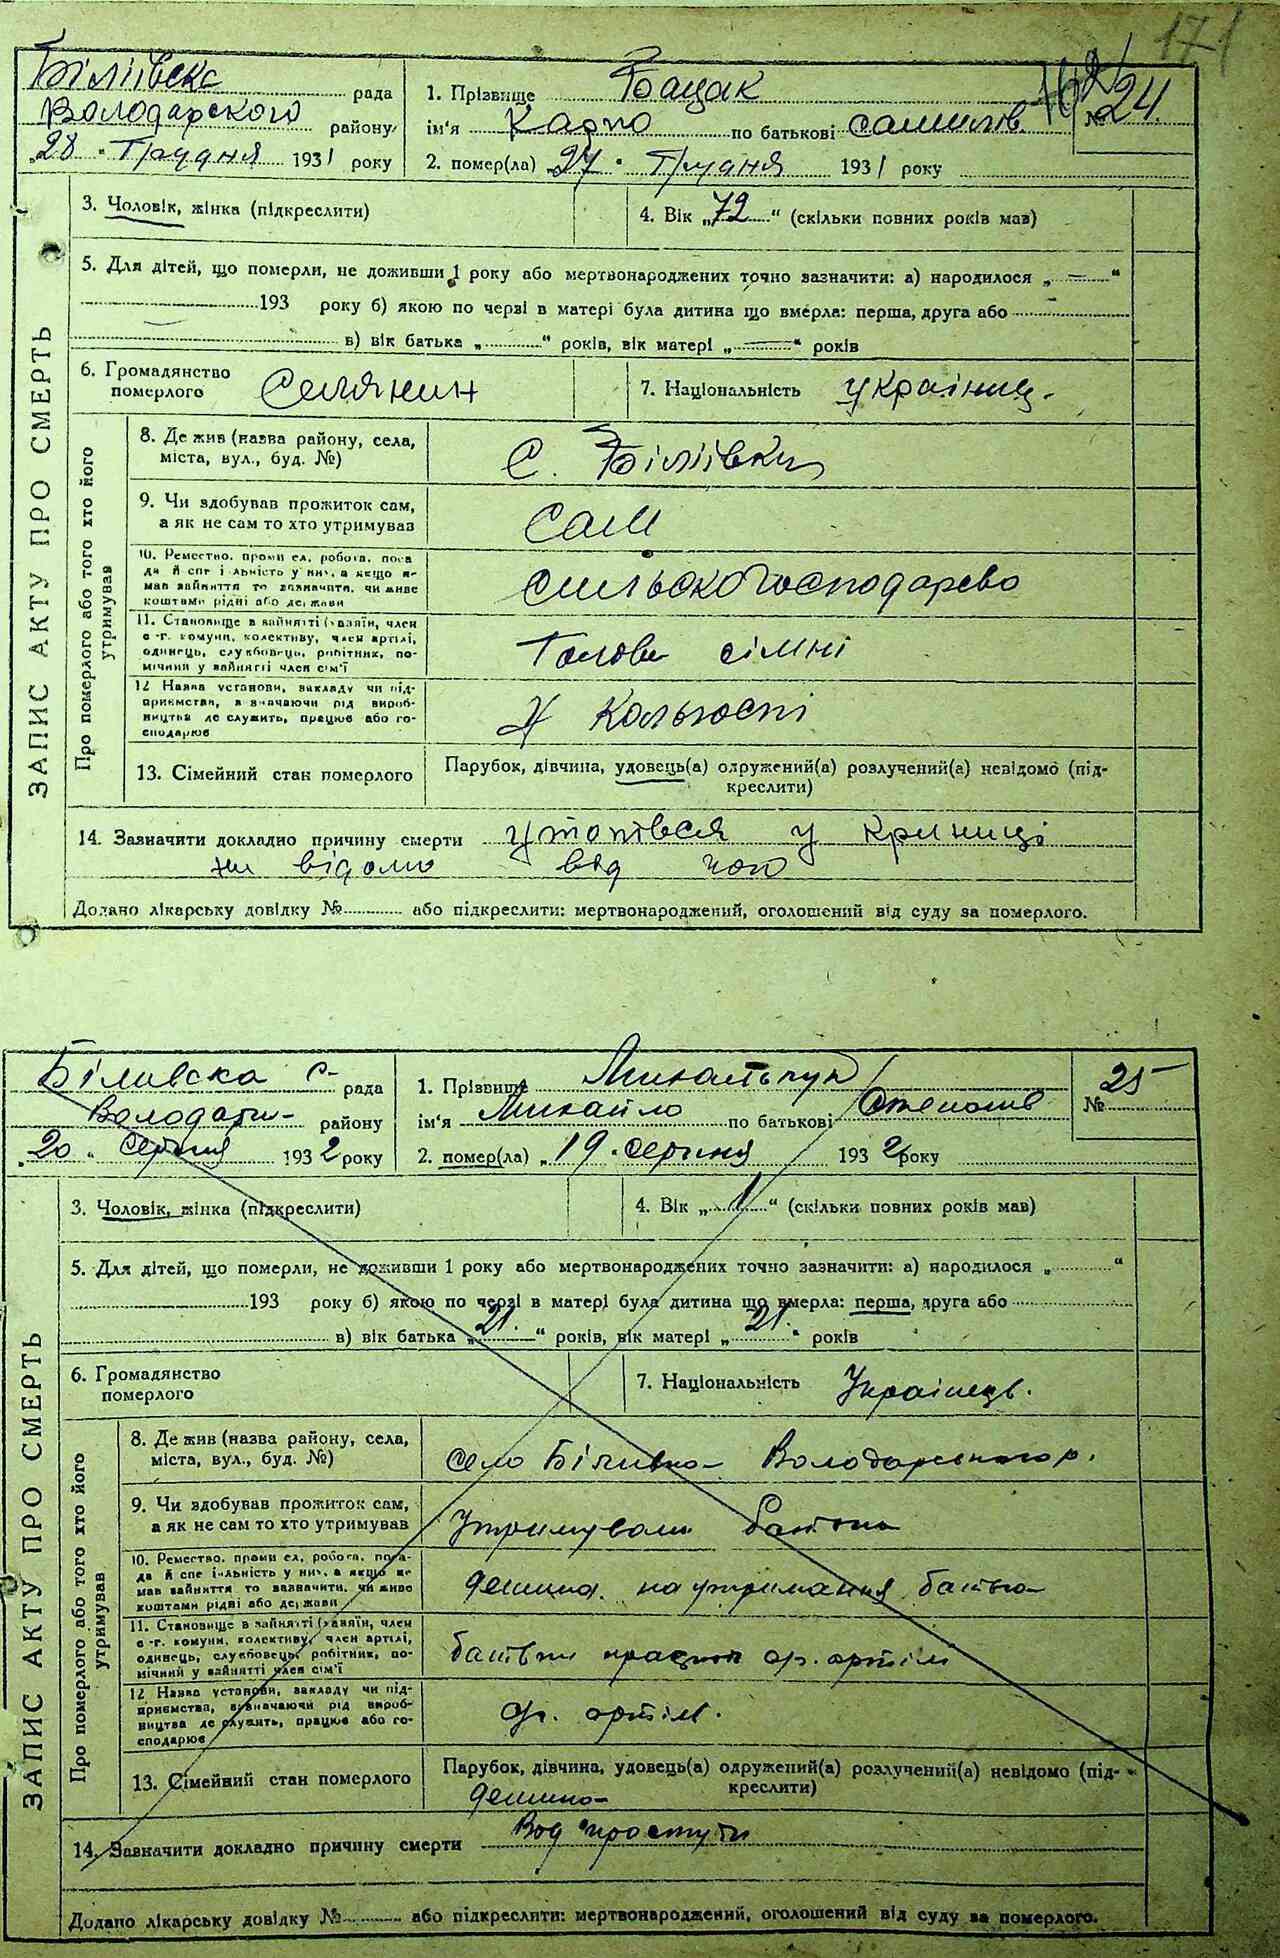 171
Біліївска рада
Володарского району
„28 " Грудня 1931 року
1. Прізвище Бацак
ім'я Карпо по батькові Самилів.
№ 24.
2. помер(ла) „27 " Грудня 1931 року
3. Чоловік, жінка (підкреслити)
4. Вік „72" (скільки повних років мав)
5. Для дітей, що померли, не доживши 1 року або мертвонароджених точно зазначити: а) народилося „ — "
193 року б) якою по черзі в матері була дитина що вмерла: перша, друга або
в) вік батька „ " років, вік матері „ — " років
6. Громадянство померлого Селянин
7. Національність українец.
ЗАПИС АКТУ ПРО СМЕРТЬ
Про померлого або того хто його утримував
8. Де жив (назва району, села,
міста, вул., буд. №)
с. Біліївки
9. Чи здобував прожиток сам,
а як не сам то хто утримував
сам
10. Ремество, промисел, робота, поса-
да й спеціальність у них, а якщо не
мав зайняття то зазначити, чи живе
коштами рідні або держави
сильскогосподарево
11. Становище в зайнятті (хазяїн, член
с.-г. комуни, колективу, член артілі,
одинець, службовець, робітник, по-
мічний у зайнятті член сім'ї
Голова сімні
12 Назва установи, закладу чи під-
приємства, зазначаючи рід вироб-
ництва де служить, працює або го-
сподарює
У Кольгоспі
13. Сімейний стан померлого
Парубок, дівчина, удовець(а) одружений(а) розлучений(а) невідомо (під-
креслити)
14. Зазначити докладно причину смерти утопівся у криниці
ни відомо від чого
Додано лікарську довідку № або підкреслити: мертвонароджений, оголошений від суду за померлого.
Біливска с- рада
Володари- району
„20 " серпня 1932 року
1. Прізвище Михальчук
ім'я Михайло по батькові Степанів
№ 25
2. помер(ла) „19 " серпня 1932 року
3. Чоловік, жінка (підкреслити)
4. Вік „1" (скільки повних років мав)
5. Для дітей, що померли, не доживши 1 року або мертвонароджених точно зазначити: а) народилося „ "
193 року б) якою по черзі в матері була дитина що вмерла: перша, друга або
в) вік батька „21." років, вік матері „21." років
6. Громадянство
померлого
7. Національність Українець.
ЗАПИС АКТУ ПРО СМЕРТЬ
Про померлого або того хто його утримував
8. Де жив (назва району, села,
міста, вул., буд. №)
село Біливка Володарського р.
9. Чи здобував прожиток сам,
а як не сам то хто утримував
Утримували батьки
10. Ремество, промисел, робота, поса-
да й спеціальність у них, а якщо не
мав зайняття то зазначити, чи живе
коштами рідні або держави
дитина на утримання батька
11. Становище в зайнятті (хазяїн, член
с.-г. комуни, колективу, член артілі,
одинець, службовець, робітник, по-
мічний у зайнятті член сім'ї
батьки артіли
12 Назва установи, закладу чи під-
приємства, зазначаючи рід вироб-
ництва де служить, працює або го-
сподарює
артіл.
13. Сімейний стан померлого
Парубок, дівчина, удовець(а) одружений(а) розлучений(а) невідомо (під-
креслити)
дитина
14. Зазначити докладно причину смерти Вод простути
Додано лікарську довідку № або підкреслити: мертвонароджений, оголошений від суду за померлого.